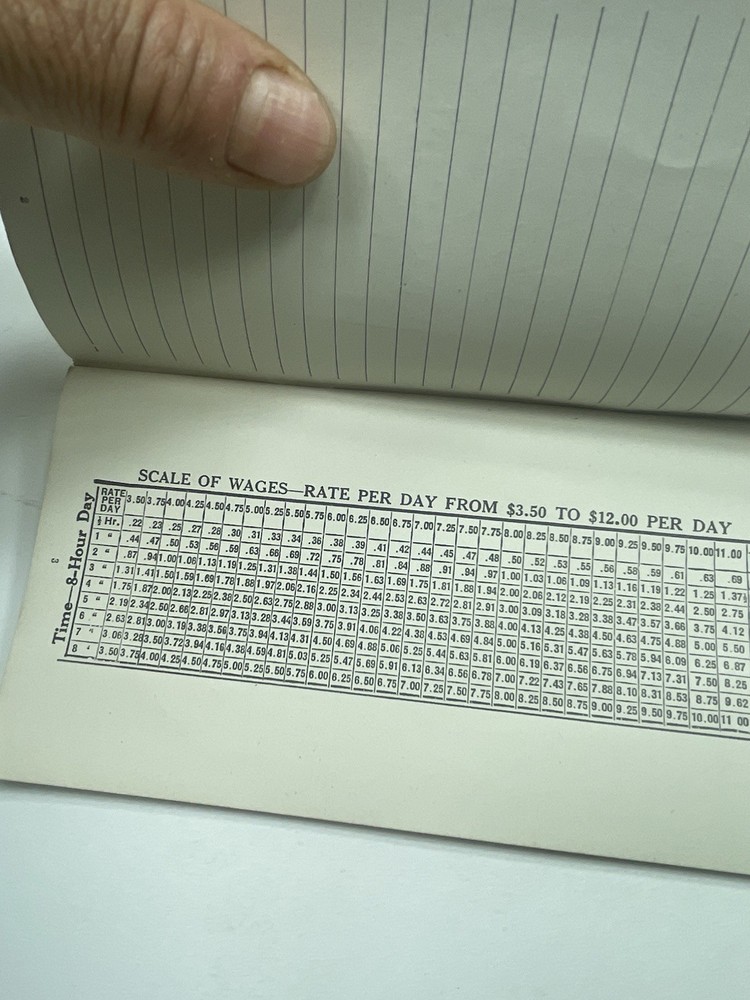 SCALE OF WAGES—RATE PER DAY FROM $3.50 TO $12.00 PER DAY
Time—8-Hour Day
RATE PER DAY 3.50 3.75 4.00 4.25 4.50 4.75 5.00 5.25 5.50 5.75 6.00 6.25 6.50 6.75 7.00 7.25 7.50 7.75 8.00 8.25 8.50 8.75 9.00 9.25 9.50 9.75 10.00 11.00
½ Hr. .22 .23 .25 .27 .28 .30 .31 .33 .34 .36 .38 .39 .41 .42 .44 .45 .47 .48 .50 .52 .53 .55 .56 .58 .59 .61 .63 .69
1 " .44 .47 .50 .53 .56 .59 .63 .66 .69 .72 .75 .78 .81 .84 .88 .91 .94 .97 1.00 1.03 1.06 1.09 1.13 1.16 1.19 1.22 1.25 1.37½
2 " .87 .94 1.00 1.06 1.13 1.19 1.25 1.31 1.38 1.44 1.50 1.56 1.63 1.69 1.75 1.81 1.88 1.94 2.00 2.06 2.12 2.19 2.25 2.31 2.38 2.44 2.50 2.75
3 " 1.31 1.41 1.50 1.59 1.69 1.78 1.88 1.97 2.06 2.16 2.25 2.34 2.44 2.53 2.63 2.72 2.81 2.91 3.00 3.09 3.18 3.28 3.38 3.47 3.57 3.66 3.75 4.12
4 " 1.75 1.87 2.00 2.13 2.25 2.38 2.50 2.63 2.75 2.88 3.00 3.13 3.25 3.38 3.50 3.63 3.75 3.88 4.00 4.13 4.25 4.38 4.50 4.63 4.75 4.88 5.00 5.50
5 " 2.19 2.34 2.50 2.66 2.81 2.97 3.13 3.28 3.44 3.59 3.75 3.91 4.06 4.22 4.38 4.53 4.69 4.84 5.00 5.16 5.31 5.47 5.63 5.78 5.94 6.09 6.25 6.87
6 " 2.63 2.81 3.00 3.19 3.38 3.56 3.75 3.94 4.13 4.31 4.50 4.69 4.88 5.06 5.25 5.44 5.63 5.81 6.00 6.19 6.37 6.56 6.75 6.94 7.13 7.31 7.50 8.25
7 " 3.06 3.28 3.50 3.72 3.94 4.16 4.38 4.59 4.81 5.03 5.25 5.47 5.69 5.91 6.13 6.34 6.56 6.78 7.00 7.22 7.43 7.65 7.88 8.10 8.31 8.53 8.75 9.62
8 " 3.50 3.75 4.00 4.25 4.50 4.75 5.00 5.25 5.50 5.75 6.00 6.25 6.50 6.75 7.00 7.25 7.50 7.75 8.00 8.25 8.50 8.75 9.00 9.25 9.50 9.75 10.00 11 00